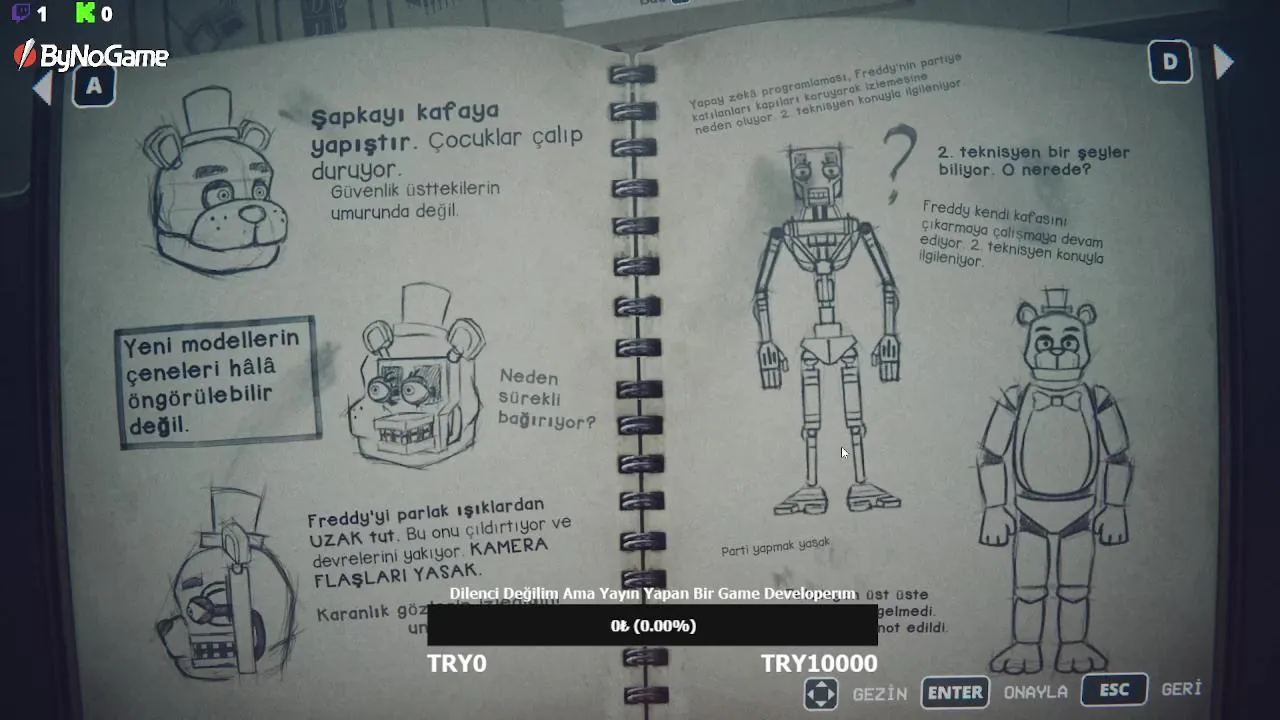 1
0
ByNoGame
A
D
Şapkayı kafaya
yapıştır. Çocuklar çalıp
duruyor.
Güvenlik üsttekilerin
umurunda değil.
Yeni modellerin
çeneleri hâlâ
öngörülebilir
değil.
Neden
sürekli
bağırıyor?
Freddy'yi parlak ışıklardan
UZAK tut. Bu onu çıldırtıyor ve
devrelerini yakıyor. KAMERA
FLAŞLARI YASAK.
Karanlık
Yapay zekâ programlaması, Freddy'nin partiye
katılanları kapıları koruyarak izlemesine
neden oluyor. 2. teknisyen konuyla ilgileniyor.
?
2. teknisyen bir şeyler
biliyor. O nerede?
Freddy kendi kafasını
çıkarmaya çalışmaya devam
ediyor. 2. teknisyen konuyla
ilgileniyor.
Parti yapmak yasak
üst üste
gelmedi.
not edildi.
Dilenci Değilim Ama Yayın Yapan Bir Game Developerım
0₺ (0.00%)
TRY0
TRY10000
GEZİN
ENTER
ONAYLA
ESC
GERİ